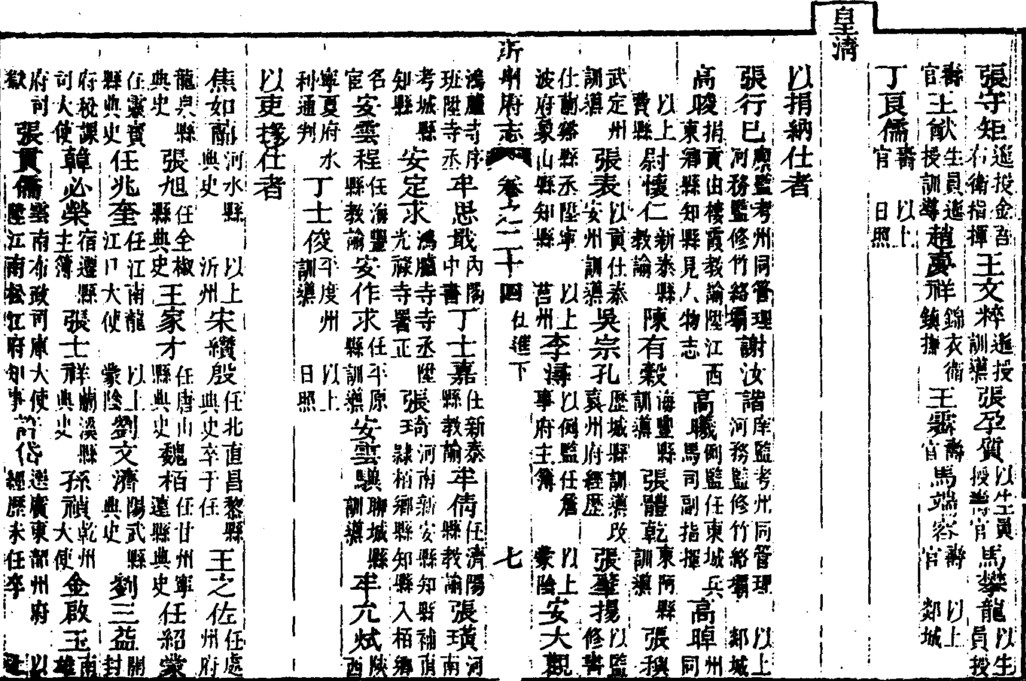 皇清
張守矩遥授金吾右衛指揮王文粹遥授訓導張孕質以生員授壽官馬攀龍以生員授
壽官王猷生員遥授訓導趙夢祥錦衣衛鎮撫王霨壽官馬端容壽官以上郯城
丁良儒壽官以上日照
以捐納仕者
張行巳廩監考州同管理河務監修竹絡壩謝汝諧庠監考州同管理河務監修竹絡壩以上郯城
高晙捐貢由棲霞教諭陞江西東鄉縣知縣見人物志高曦例監任東城兵馬司副指揮高晫州同
以上費縣尉懷仁新泰縣教諭陳有穀海豐縣訓導張體乾東阿縣訓導張撰
武定州訓導張表以貢仕泰安州訓導吳宗孔歷城縣訓導改袁州府經歷張聲揚以監修書
仕蘭谿縣丞陞寧波府象山縣知縣以上莒州李濤以例監任詹事府主簿以上蒙陰安大觀
沂州府志 卷之二十四 仕進下 七
鴻臚寺序班陞寺丞牟思戢內閣中書丁士嘉任新泰縣教諭牟倩任濟陽縣教諭張璜河南
考城縣知縣安定求鴻臚寺寺丞陞光祿寺署正張琦河南新安縣知縣補直隸栢鄉縣知縣入栢鄉
名宦安雲程任海豐縣教諭安作求任平原縣訓導安雲驤聊城縣訓導牟允斌陝西
寧夏府水利通判丁士俊平度州訓導以上日照
以吏掾仕者
焦如蘭河水縣典史以上沂州宋纘殷任北直昌黎縣典史卒于任王之佐任處州府
龍泉縣典史張旭任全椒縣典史王家才任唐山縣典史魏栢任甘州寧遠縣典史任紹棠
任靈寶縣典史任兆奎任江南龍江口大使以上蒙陰劉文濟陽武縣典史劉三益開封
府稅課司大使韓必榮宿遷縣主簿張士祥蘭溪縣典史孫禎乾州大使金啟玉南雄
府司獄張貢儒雲南布政司庫大使陞江南松江府知事許岱選廣東韶州府經歷未任卒以上